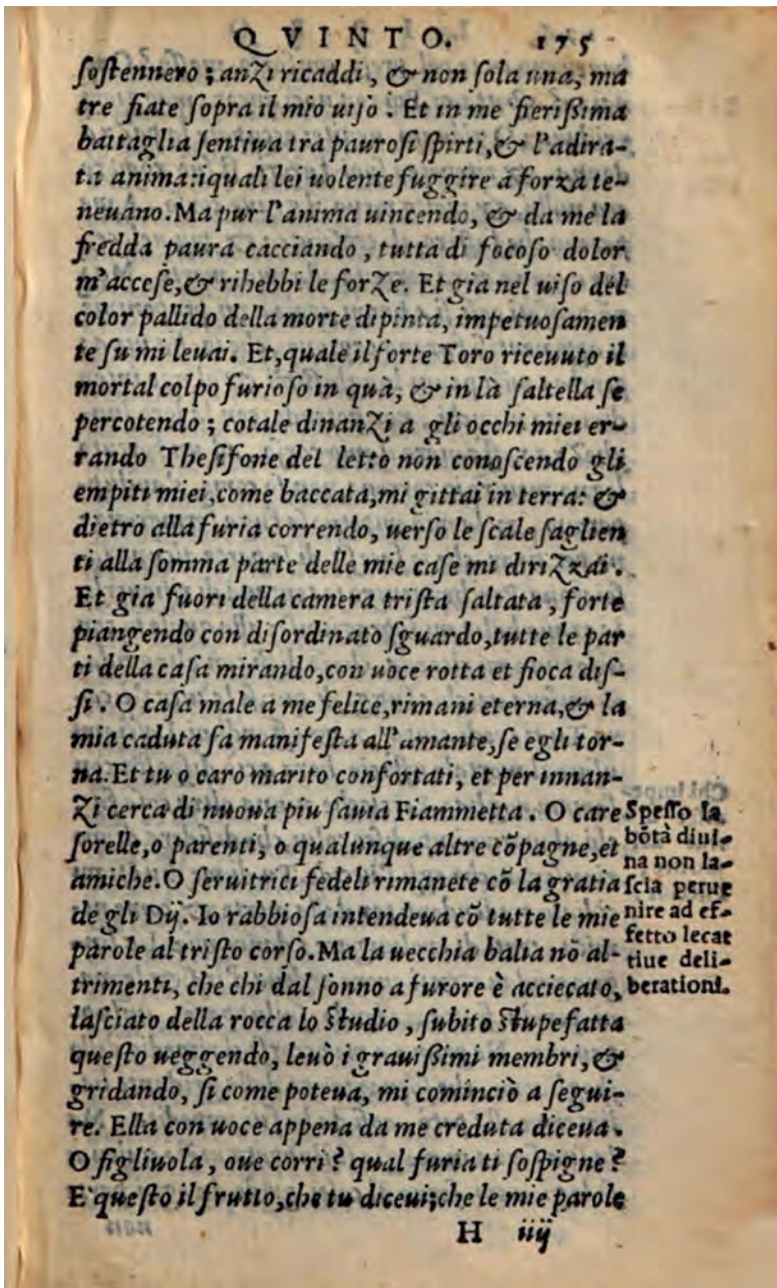 QVINTO. 175
ſoſtennero; anzi ricaddi, & non ſola una, ma
tre fiate ſopra il mio uiſo. Et in me fierißima
battaglia ſentiua tra pauroſi ſpirti, & l'adira-
ta anima: iquali lei uolente fuggire a forza te-
neuano. Ma pur l'anima uincendo, & da me la
fredda paura cacciando, tutta di focoſo dolor
m'acceſe, & rihebbi le forze. Et gia nel uiſo del
color pallido della morte dipinta, impetuoſamen
te ſu mi leuai. Et, quale il forte Toro riceuuto il
mortal colpo furioſo in quà, & in là ſaltella ſe
percotendo; cotale dinanzi a gli occhi miei er-
rando Theſifone del letto non conoſcendo gli
empiti miei, come baccata, mi gittai in terra: &
dietro alla furia correndo, uerſo le ſcale ſaglien
ti alla ſomma parte delle mie caſe mi dirizzai.
Et gia fuori della camera triſta ſaltata, forte
piangendo con diſordinato ſguardo, tutte le par
ti della caſa mirando, con uoce rotta et fioca diſ-
ſi. O caſa male a me felice, rimani eterna, & la
mia caduta fa manifeſta all'amante, ſe egli tor-
na. Et tu o caro marito confortati, et per innan-
zi cerca di nuoua piu ſauia Fiammetta. O care
ſorelle, o parenti, o qualunque altre cõpagne, et
amiche. O ſeruitrici fedeli rimanete cõ la gratia
de gli Dij. Io rabbioſa intendeua cõ tutte le mie
parole al triſto corſo. Ma la uecchia balia nõ al-
trimenti, che chi dal ſonno a furore è acciecato,
laſciato della rocca lo ſtudio, ſubito ſtupefatta
queſto ueggendo, leuò i grauißimi membri, &
gridando, ſi come poteua, mi cominciò a ſegui-
re. Ella con uoce appena da me creduta diceua.
O figliuola, oue corri? qual furia ti ſoſpigne?
E' queſto il frutto, che tu diceui; che le mie parole
H iiij
Speſſo la
bõtà diui-
na non la-
ſcia perue
nire ad ef-
fetto le cat
tiue deli-
berationi.